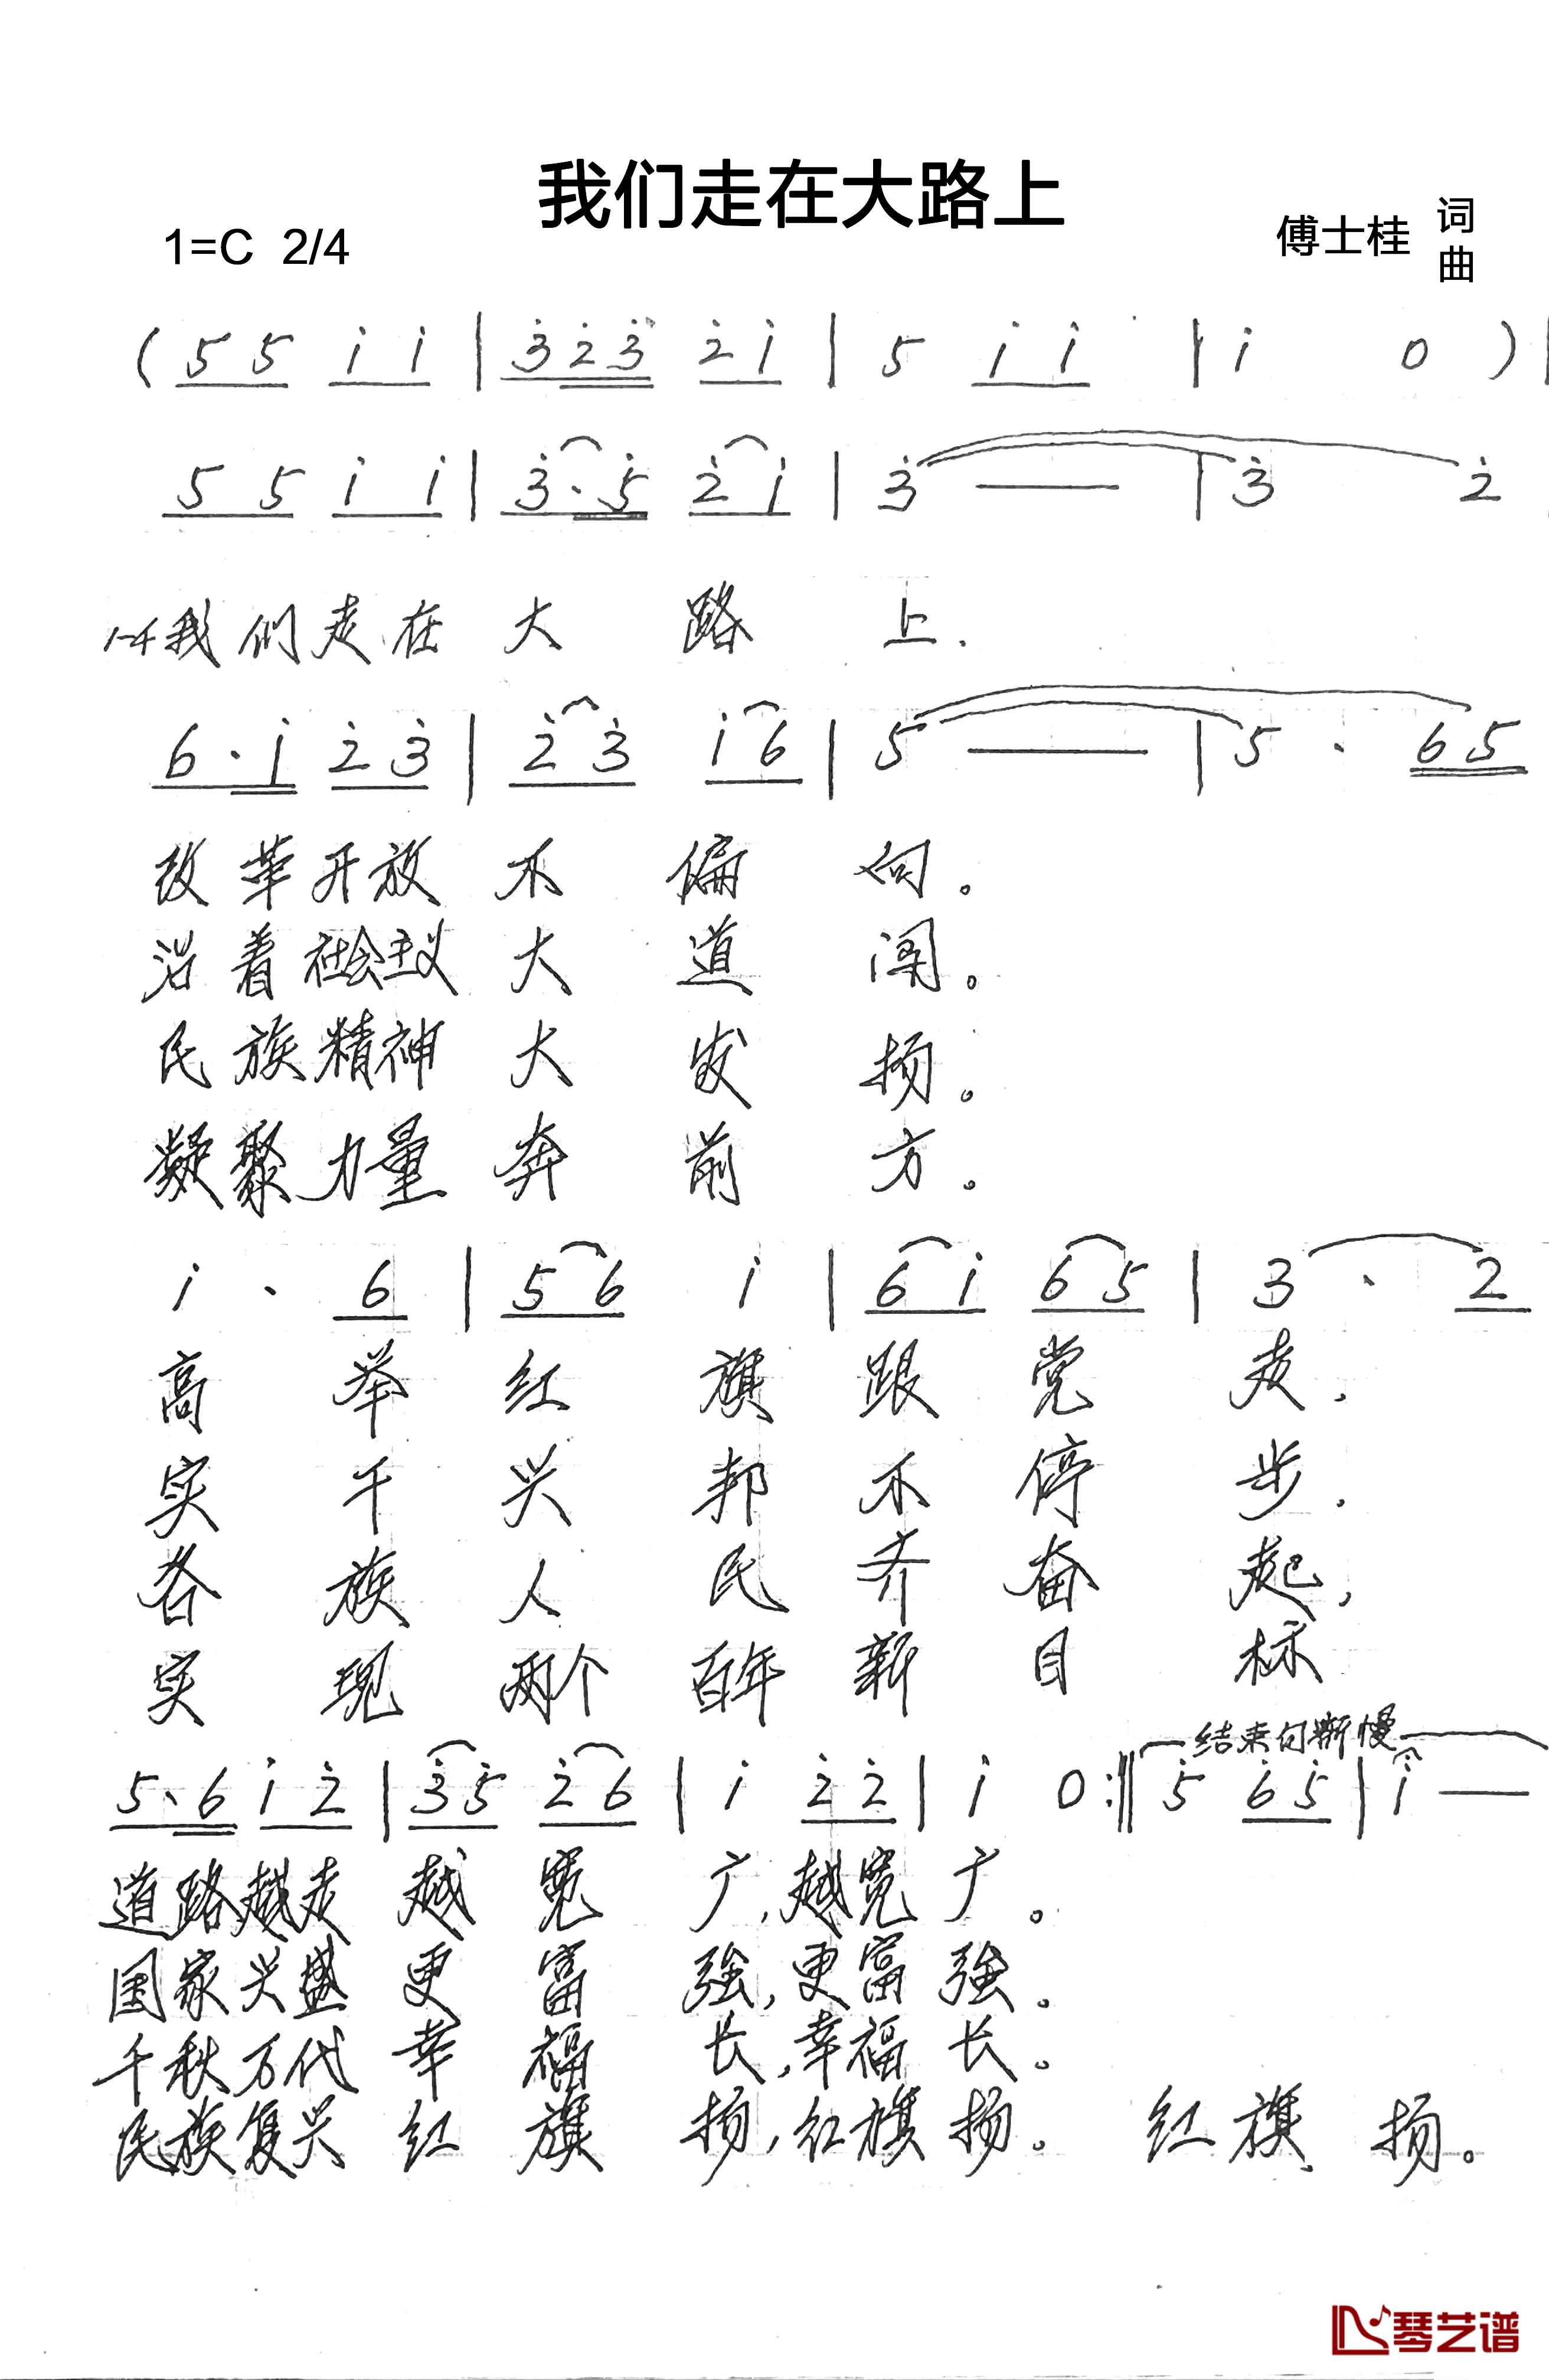 我们走在大路上
1=C 2/4
傅士桂 词曲
( 5 5 i i | 3 2 3 2 i | 5 i i | i 0 ) |
5 5 i i | 3 · 5 2 i | 3 — | 3 2
1-4我们走在大路上.
6 · i 2 3 | 2 3 i 6 | 5 — | 5 · 6 5
改革开放不偏向。
沿着社会主义大道闯。
民族精神大发扬。
凝聚力量奔前方。
i · 6 | 5 6 i | 6 i 6 5 | 3 · 2
高举红旗跟党走,
实干兴邦不停步.
各族人民齐奋起,
实现两个百年新目标
结束句渐慢
5 · 6 i 2 | 3 5 2 6 | i 2 2 | i 0 :‖ 5 6 5 | i —
道路越走越宽广,越宽广。
国家兴盛更富強,更富強。
千秋万代幸福长,幸福长。
民族复兴红旗扬,红旗扬。 红旗扬。
琴艺谱